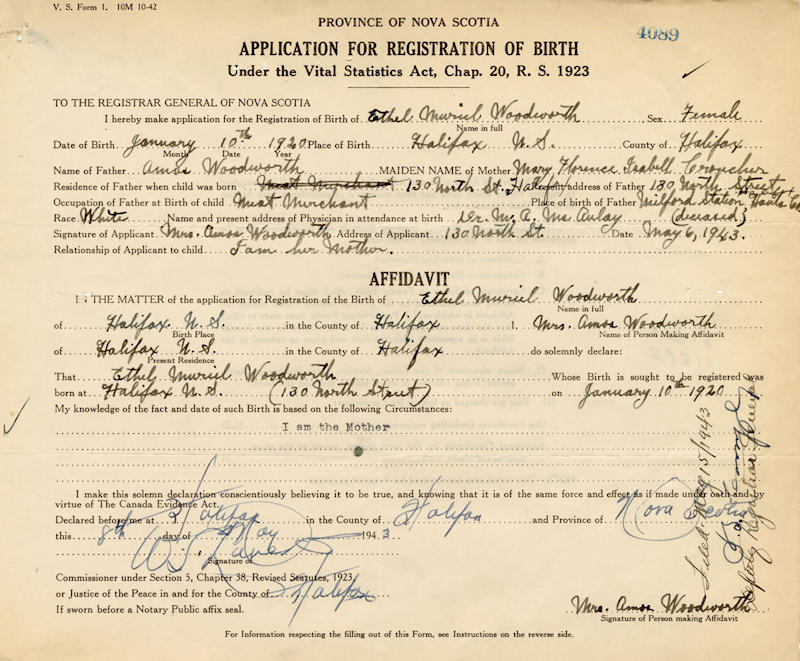 V. S. Form 1. 10M 10-42
PROVINCE OF NOVA SCOTIA
4089
APPLICATION FOR REGISTRATION OF BIRTH
Under the Vital Statistics Act, Chap. 20, R. S. 1923
TO THE REGISTRAR GENERAL OF NOVA SCOTIA
I hereby make application for the Registration of Birth of Ethel Muriel Woodworth Sex Female
Name in full
Date of Birth January 10th 1920 Place of Birth Halifax N.S. County of Halifax
Month Date Year
Name of Father Amos Woodworth MAIDEN NAME of Mother Mary Florence Isabell Croucher
Residence of Father when child was born Meat Merchant 130 North St. Halifax address of Father 130 North Street
Occupation of Father at Birth of child Meat Merchant Place of birth of Father Milford Station, Hants Co
Race White Name and present address of Physician in attendance at birth Dr. M. A. McAulay (deceased)
Signature of Applicant Mrs. Amos Woodworth Address of Applicant 130 North St. Date May 6, 1943.
Relationship of Applicant to child I am her Mother.
AFFIDAVIT
IN THE MATTER of the application for Registration of the Birth of Ethel Muriel Woodworth
Name in full
of Halifax N.S. in the County of Halifax I, Mrs. Amos Woodworth
Birth Place Name of Person Making Affidavit
of Halifax N.S. in the County of Halifax do solemnly declare:
Present Residence
That Ethel Muriel Woodworth Whose Birth is sought to be registered was
born at Halifax N.S. (130 North Street) on January 10th 1920
My knowledge of the fact and date of such Birth is based on the following Circumstances:
I am the Mother
I make this solemn declaration conscientiously believing it to be true, and knowing that it is of the same force and effect as if made under oath and by
virtue of The Canada Evidence Act.
Declared before me at Halifax in the County of Halifax and Province of Nova Scotia
this 8th day of May 1943
Signature of
Commissioner under Section 5, Chapter 38, Revised Statutes, 1923,
or Justice of the Peace in and for the County of Halifax
If sworn before a Notary Public affix seal.
Mrs. Amos Woodworth
Signature of Person making Affidavit
For Information respecting the filling out of this Form, see Instructions on the reverse side.
Filed May 15/1943
Deputy Registrar General